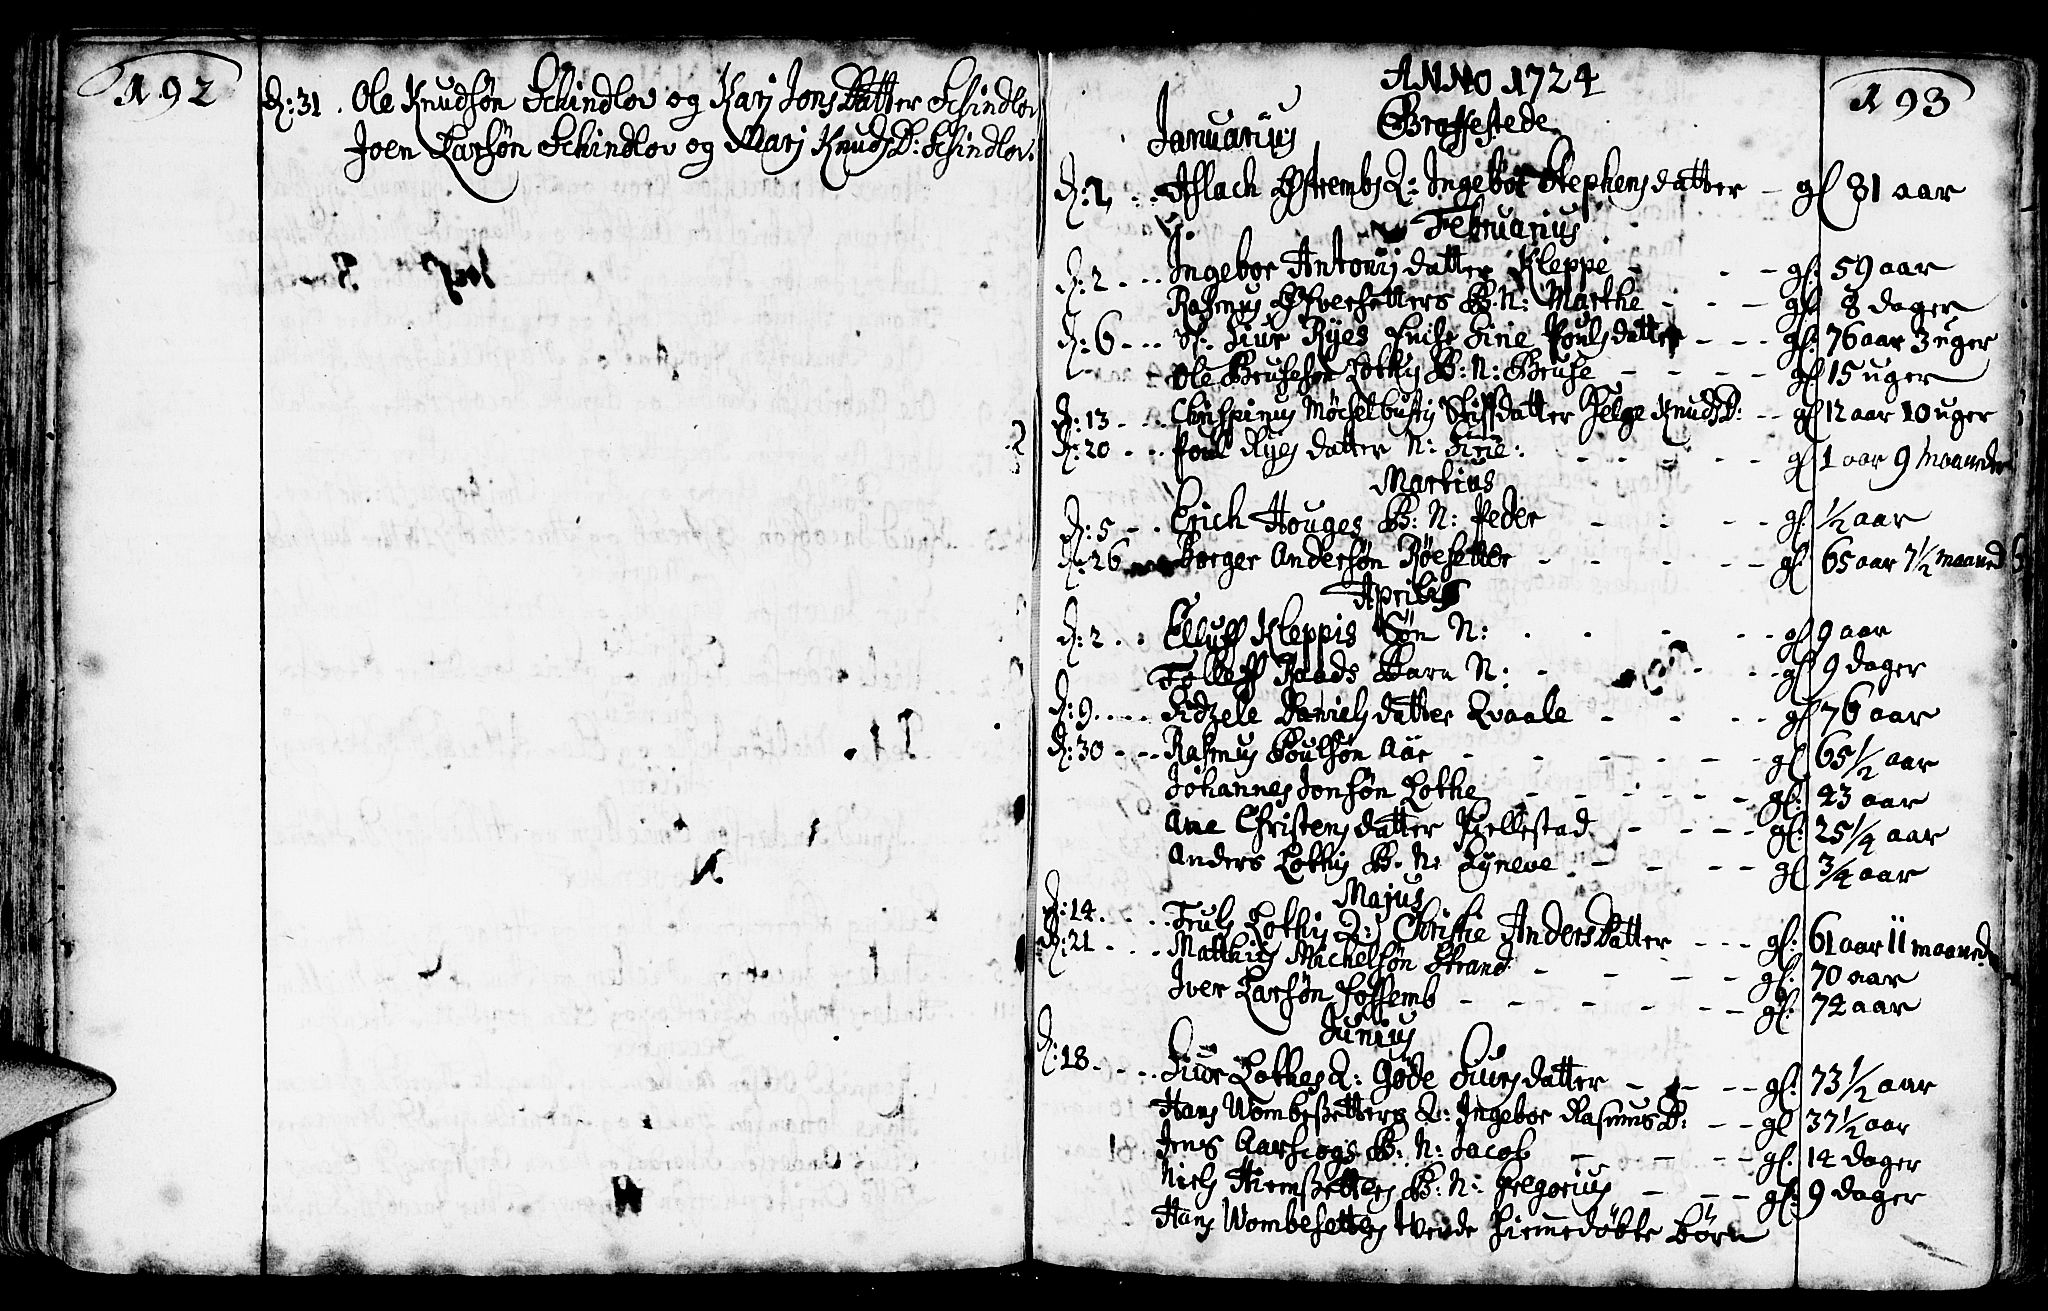 192
d: 31. Ole Knudsøn Schindlov og Kari Jons Datter Schindlov
Joen Larsøn Schindlov og Mari Knuds D: Schindlov.
193
ANNO 1724
Januarius Graffestede
d: 1, Aslach Østrembs Q: Ingebor Stephens datter gl 81 aar
Februarius
d: 2 Ingebor Antonij datter Kleppe gl: 59 aar
Rasmus Øfversetters B. N: Marthe gl 8 dager
d: 6 Siur Ryes Sine Pouls datter gl: 76 aar 3 uger
Ole Brusesøn Lothes B: N: Bruse gl 15 uger
d: 13 Chrispinus Møchelbusts Stiffdatter Helge Knuds D: gl 12 aar 10 uger
d: 20 Poul Ryes datter N: Sine: gl 1 aar 9 maaneder
Martius
d: 5 Erich Houges B: N: Peder gl: 1/2 aar
d: 26 Borger Andersøn Røesetter gl: 65 aar 7 1/2 maaned
Aprilis
d: 2 Elluff Kleppis Søn N: gl 9 aar
Tolleff Raads Barn N: gl 9 dager
d: 9 Sidzele Daniels datter Qvaale gl 76 aar
d: 30 Rasmus Poulsøn Aae gl 65 1/2 aar
Johannes Jonsøn Lothe gl: 43 aar
Ane Christens datter Hiellestad gl: 25 1/4 aar
Anders Lothes B. N: Synneve gl 3/4 aar
Majus
d: 14 Truls Lothes Q: Christie Anders Datter gl: 61 aar 11 maaneder
d: 21 Matthias Michelsøn Strand gl: 70 aar
Iver Larsøn Fossemb gl: 74 aar
Junius
d: 18 Siur Lothes Q: Gøde Siurs datter gl: 73 1/2 aar
Hans Wombesetters Q: Ingebor Rasmus D: gl 37 1/2 aar
Jens Aarscogs B: N: Jacob gl. 14 dager
Niels Hiemsetters B: N: Gregorius gl: 9 dager
Hans Wombesetters tvende hiemedøbte Børn